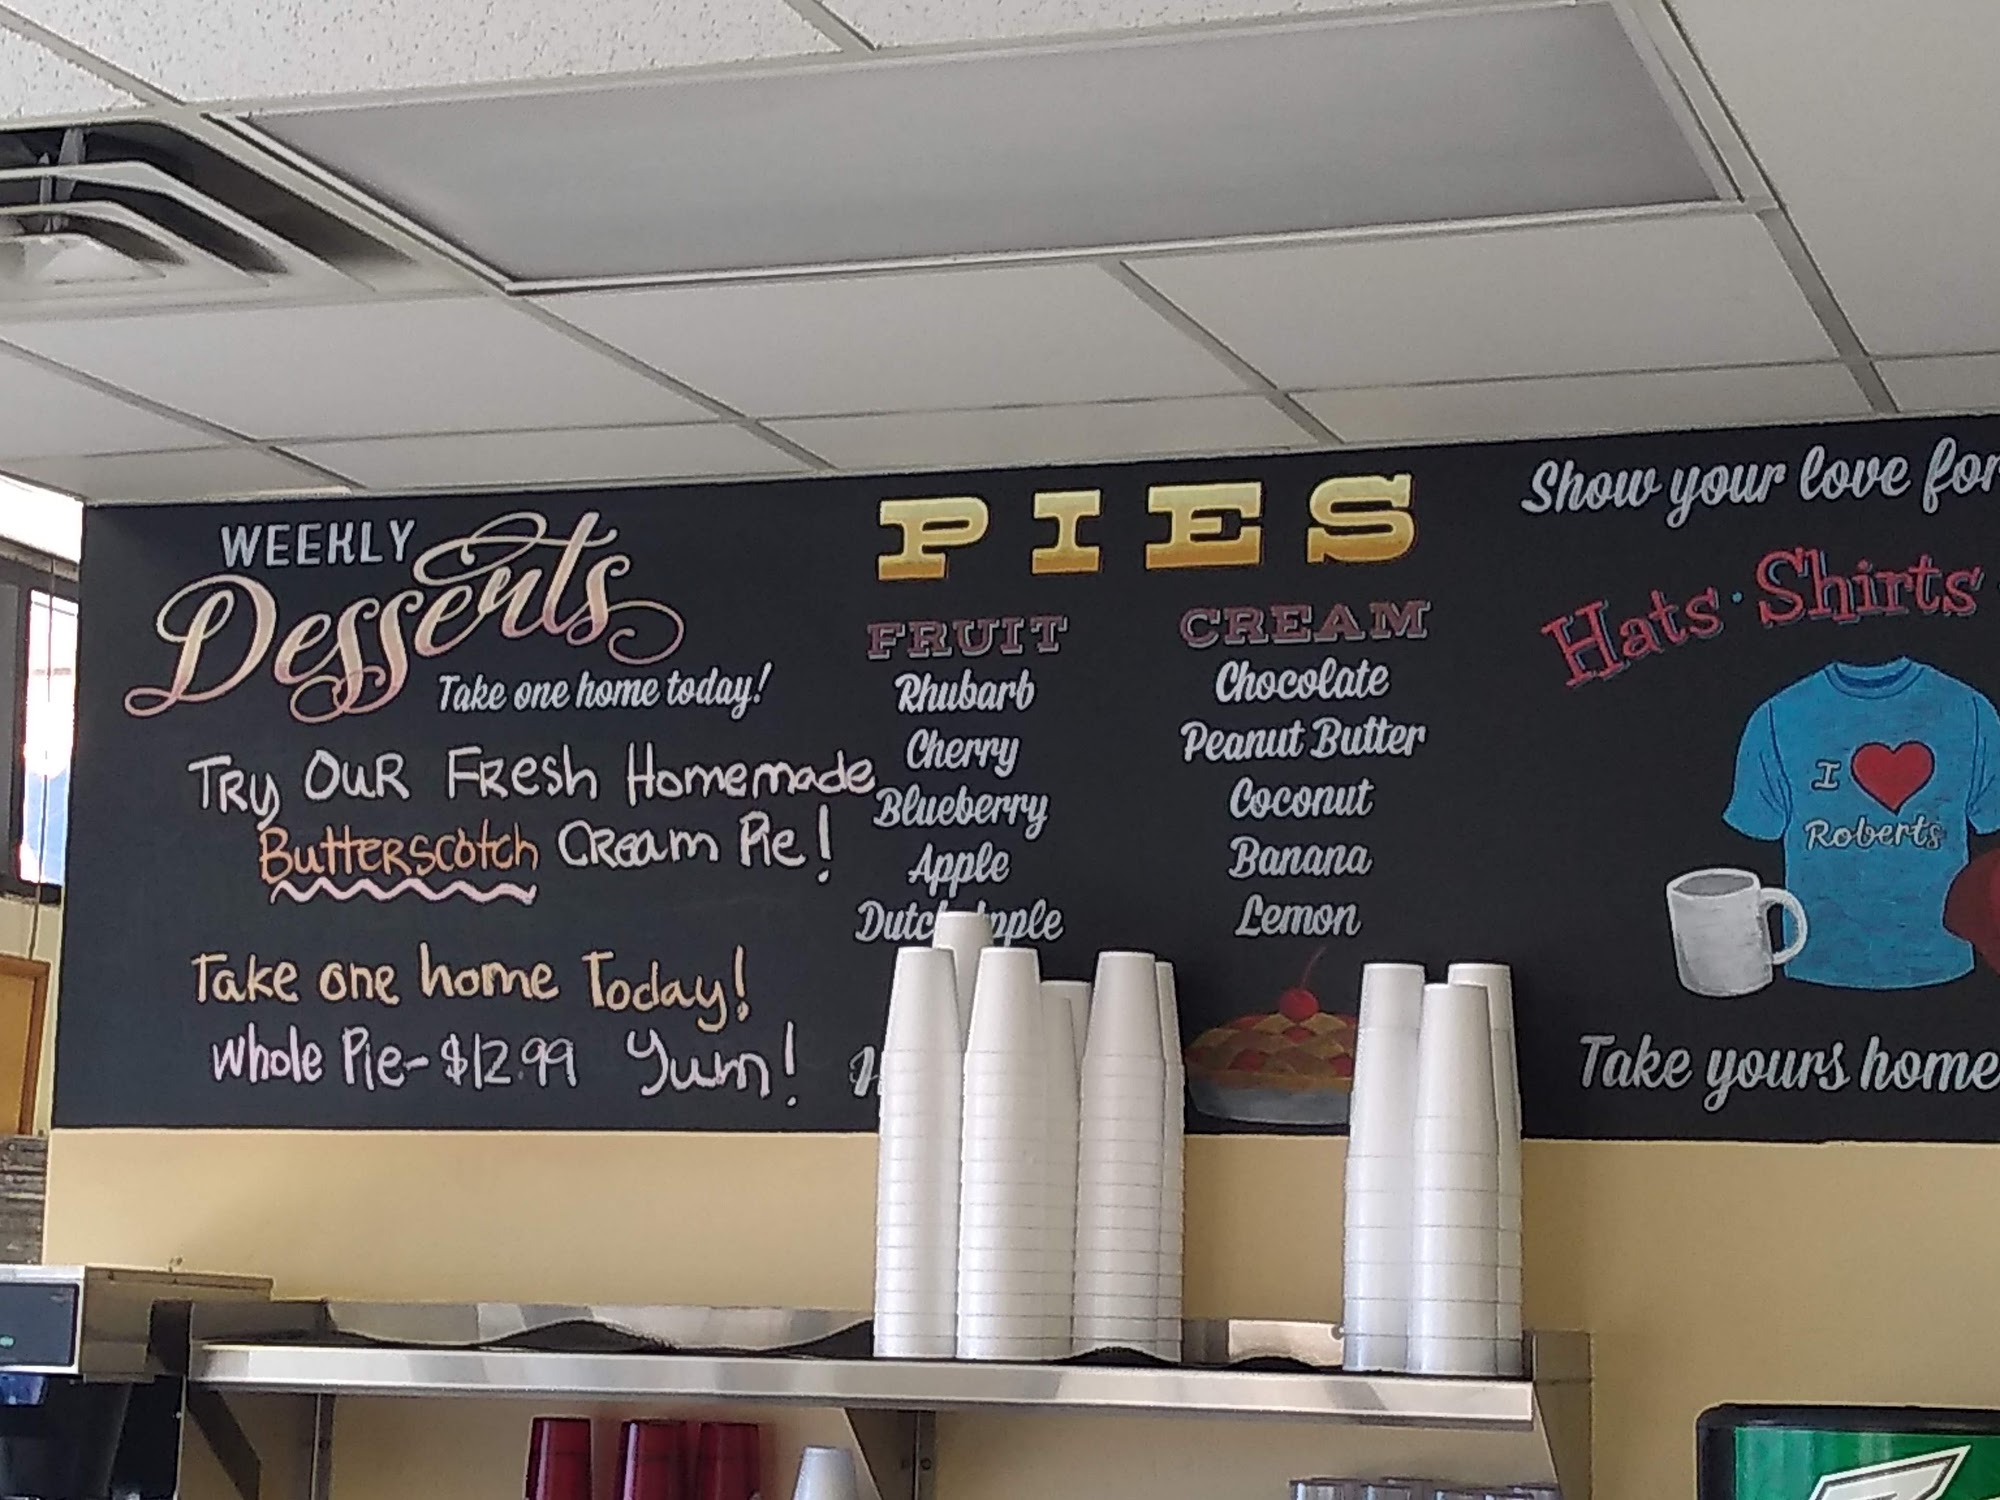 WEEKLY
Desserts
Take one home today!
Try Our Fresh Homemade
Butterscotch Cream Pie!
Take one home Today!
Whole Pie- $12.99 Yum!
PIES
FRUIT
Rhubarb
Cherry
Blueberry
Apple
Dutch Apple
CREAM
Chocolate
Peanut Butter
Coconut
Banana
Lemon
Show your love for
Hats · Shirts
I
Roberts
Take yours home